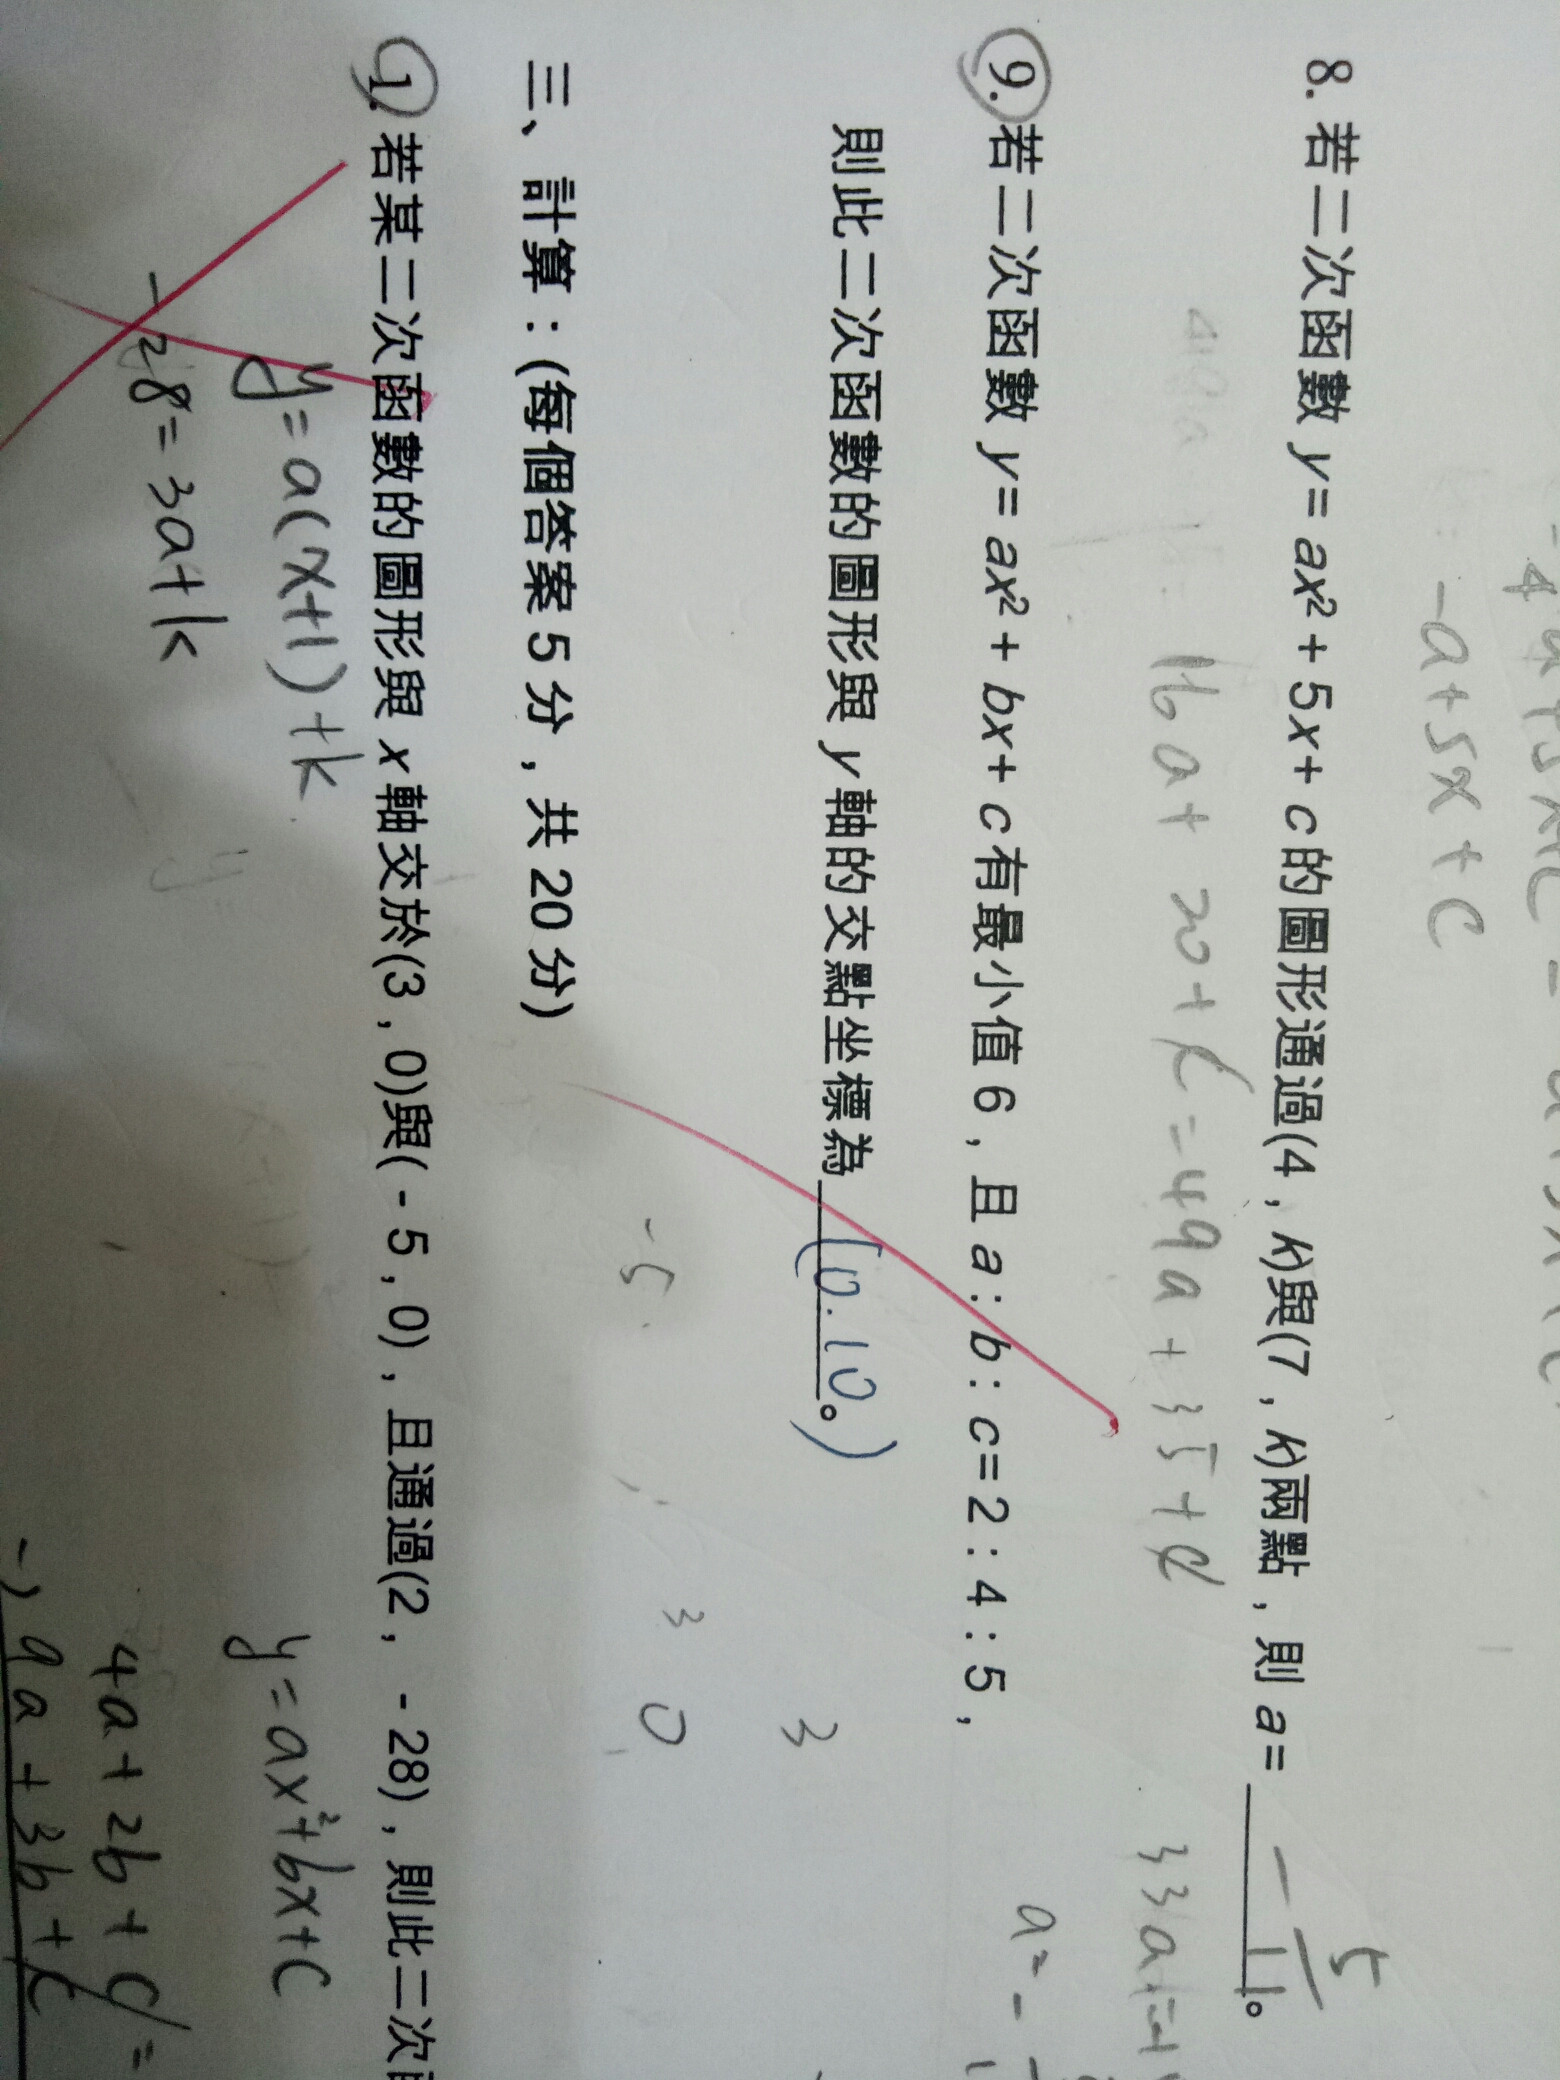 -a+5x+c
8. 若二次函數 y=ax²+5x+c的圖形通過(4,k)與(7,k)兩點，則 a= -5/11。
16a+20+c=49a+35+c
33a=-1
a=-
9. 若二次函數 y=ax²+bx+c有最小值6，且 a:b:c=2:4:5，
則此二次函數的圖形與 y 軸的交點坐標為(0.10)。
3
-5
3 0
三、計算：(每個答案5分，共20分)
1. 若某二次函數的圖形與 x 軸交於(3,0)與(-5,0)，且通過(2,-28)，則此二次
y=a(x+1)+k
y=ax²+bx+c
-28=3a+k
4a+2b+c=
-) 9a+3b+c